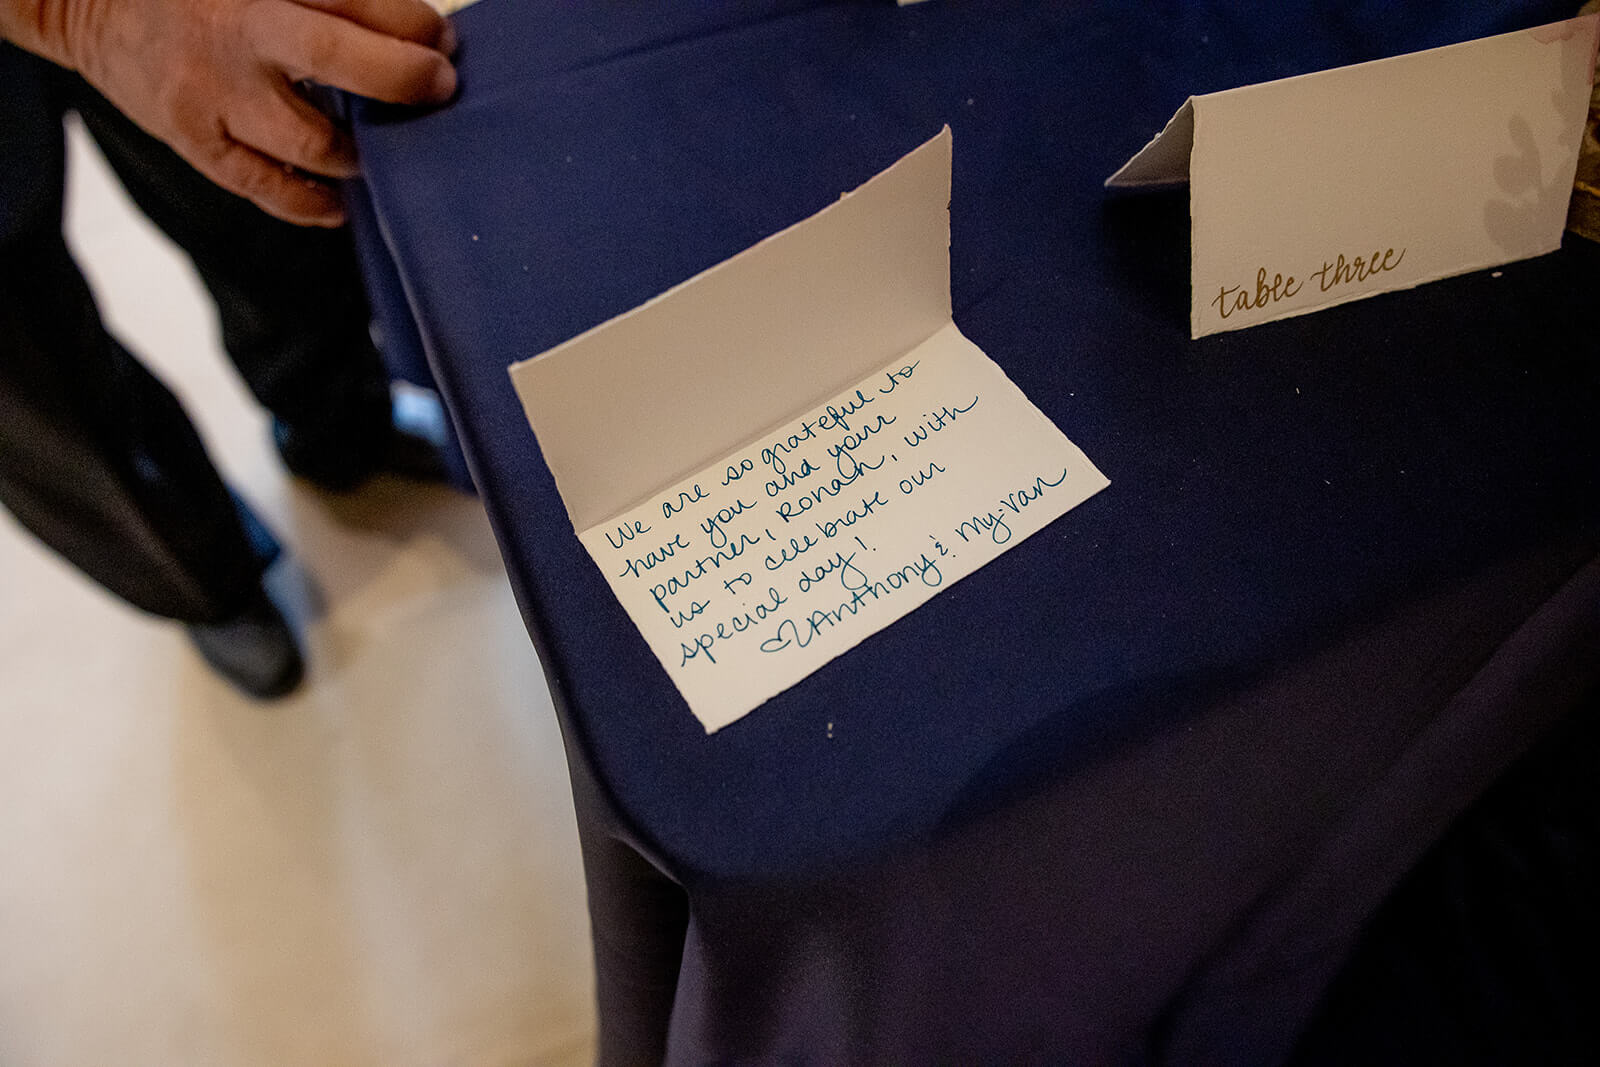 We are so grateful to
have you and your
partner, Ronan, with
us to celebrate our
special day!
♡ Anthony & My-Van
table three